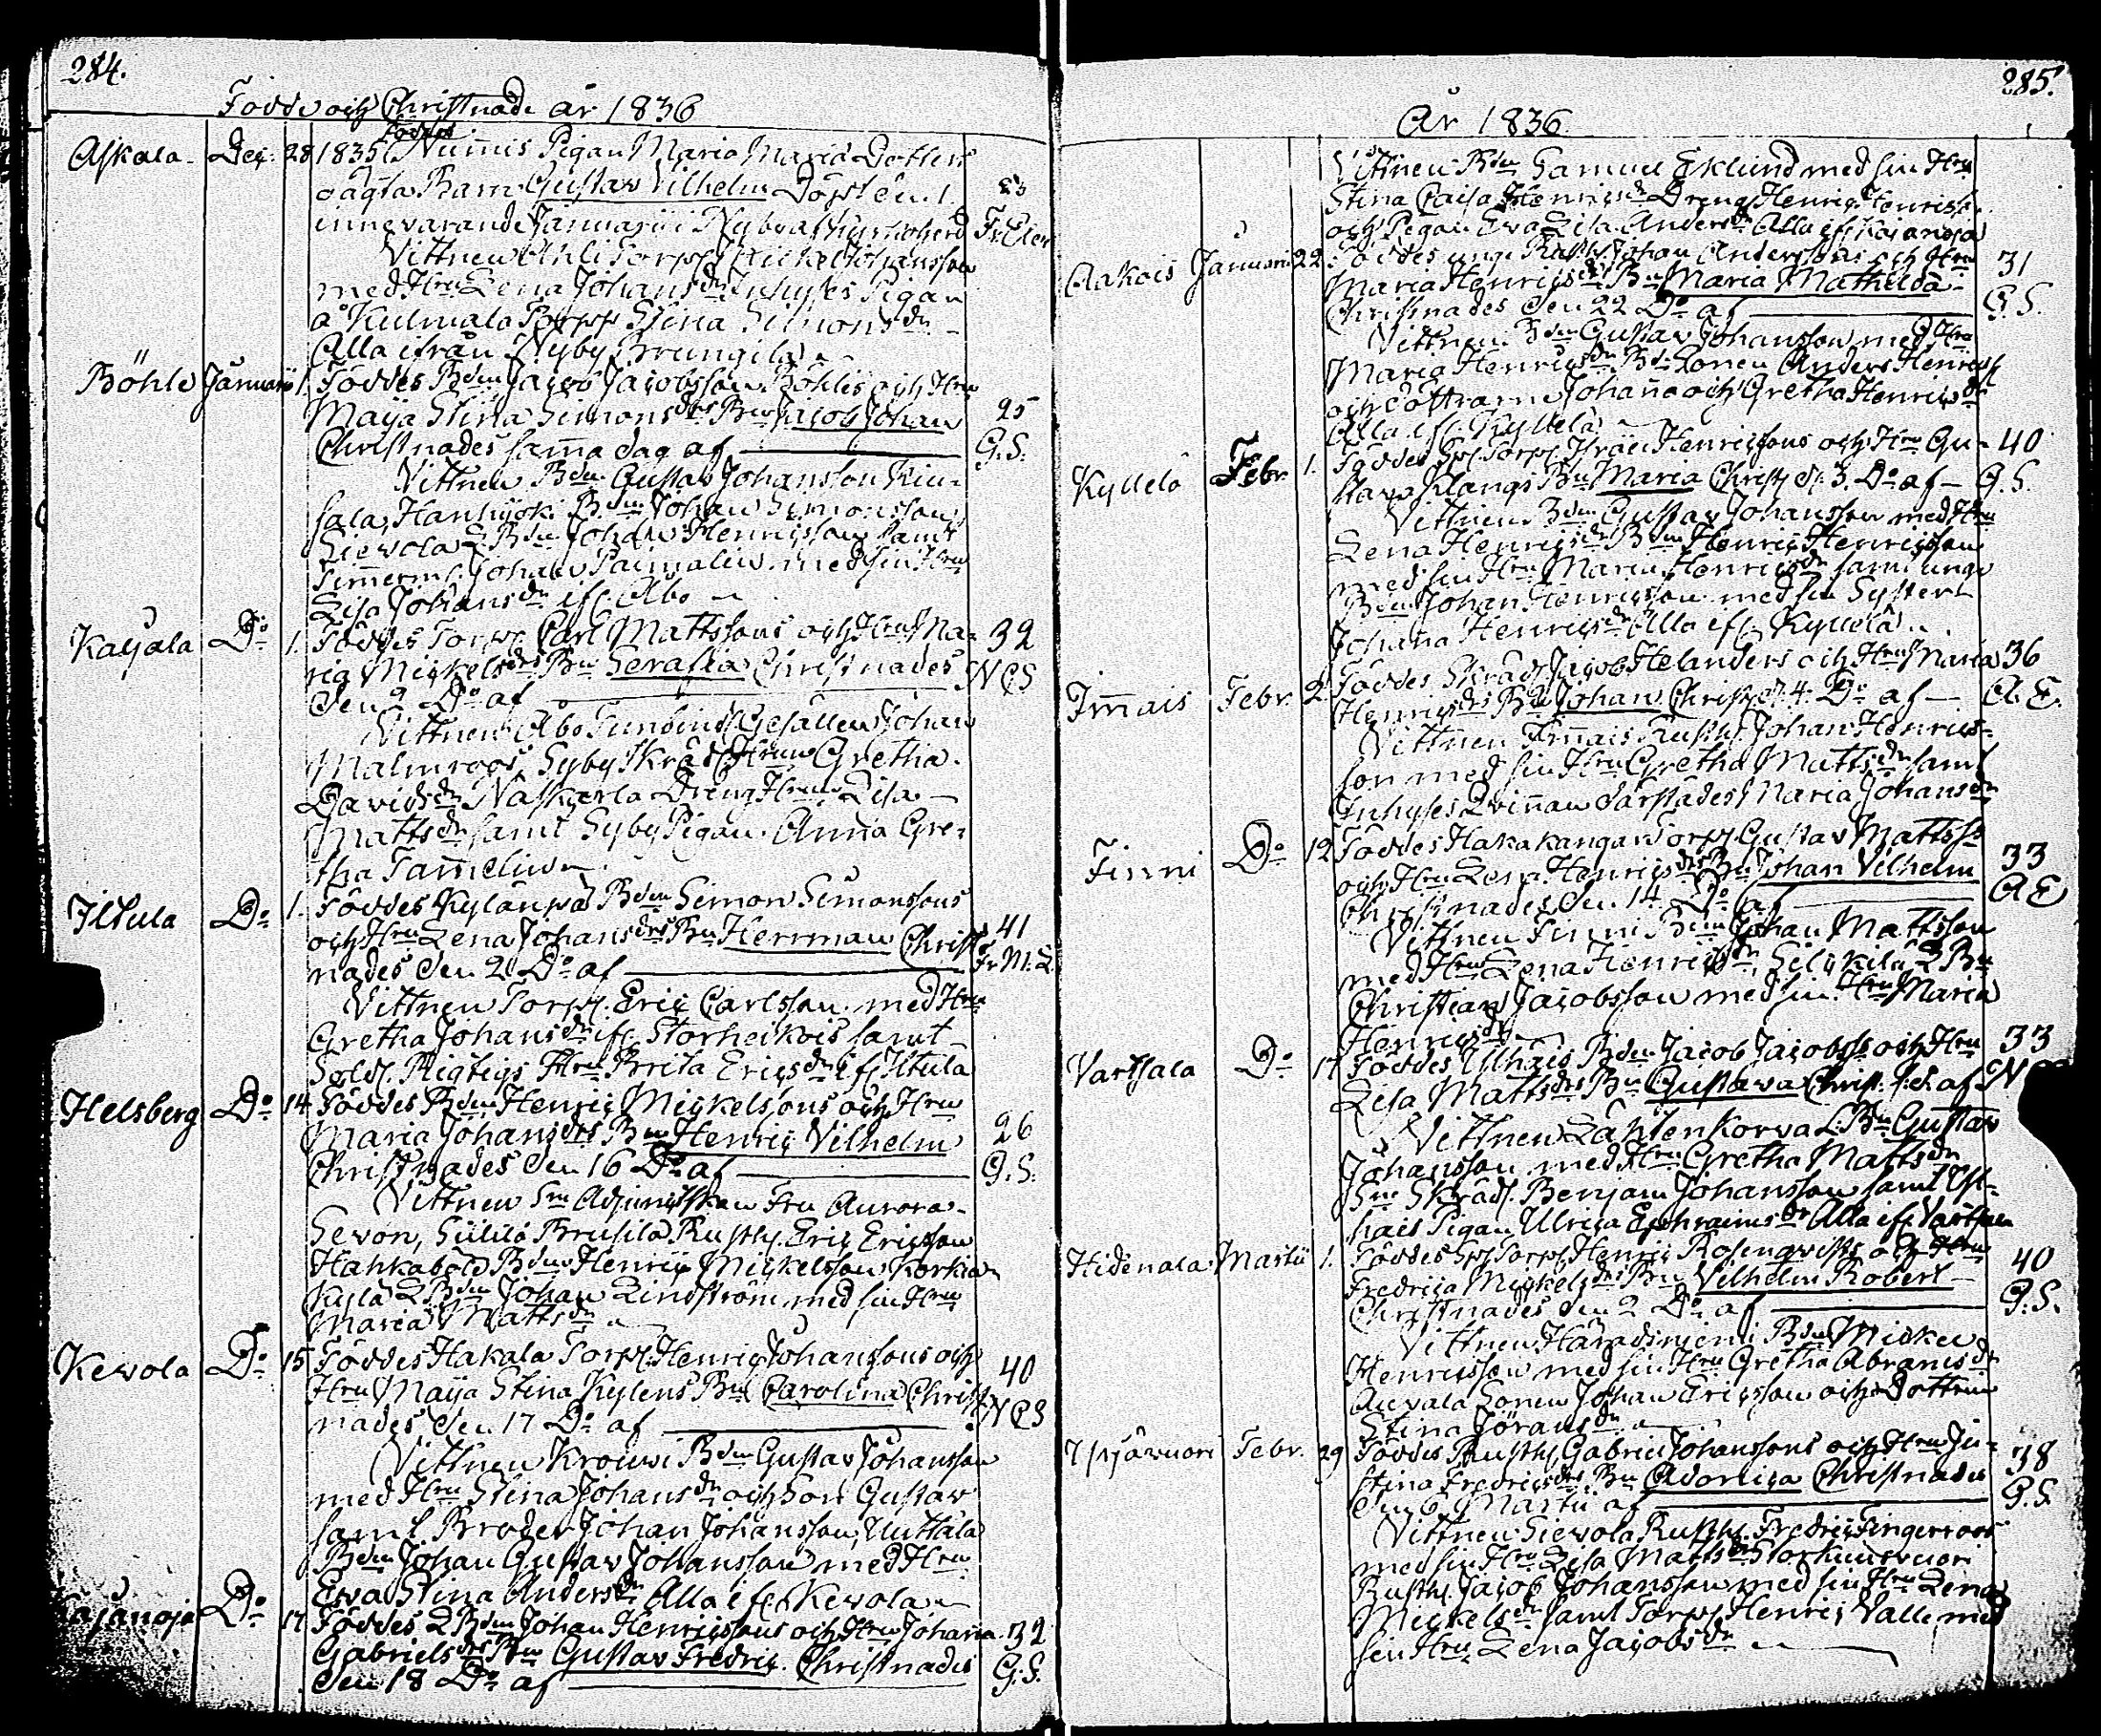 284.
Föddo och Christnade år 1836
Föddes
Askala Dec. 28 1835 Nummis Pigan Maria Maria Dotters
oägta Barn Gustav Vilhelm Döpt den 1.
innevarande Januarii i Nyby af Kyrkoherd Fr. Elen
Vittnen Torpp. Mickel Johansson
med Hru Lena Johans dr Inhyses Pigan
å Kulmala Torpp Stina Simons dr
Alla ifrån Nyby
Böhle Januarii 1. Föddes Bden Jacob Jacobsson Böhles och Hru
Maija Stina Simons drs Bn Jacob Johan 25
Christnades samma dag af G.S.
Vittnen Bden Gustav Johansson Kiu-
sala, Bden Johan Simonsson
Sievola Bden Johan Henricsson samt
Johan med sin Hru
Lisa Johans dr if. Åbo
Kayala Do 1. Föddes Torpp. Carl Mattssons och Hru Ma- 32
ria Mickels drs Bn Serafia Christnades NCS
den 2 Do af
Vittnen Åbo Gesällen Johan
Malmroos Syby Skräd. Hrun Gretha
Davids dr Naskarla Dreng Hrun Lisa
Matts dr samt Syby Pigan Anna Gre-
tha Tammelin
Iltula Do 1. Föddes Kylänpä Bden Simon Simonssons
och Hru Lena Johans drs Bn Herrman Christ- 41
nades den 2 Do af Fr. M. L.
Vittnen Torpp. Eric Carlsson med Hru
Gretha Johans dr if. Storheikois samt
Sold. Rigtigs Hru Brita Erics dr if. Iltula
Helsberg Do 14 Föddes Bden Henric Mickelssons och Hru
Maria Johans drs Bn Henric Vilhelm 26
Christnades den 16 Do af G.S.
Vittnen Fru Aurora
Sevon, Rusth. Eric Ericsson
Bden Henric Mickelsson Korkia
kylä Bden Johan Lindström med sin Hru
Maria Matts dr
Kevola Do 15 Föddes Hakala Torpp. Henric Johanssons och 40
Hru Maija Stina Kylens Bn Carolina Christ- NCS
nades den 17 Do af
Vittnen Krouvi Bden Gustav Johansson
med Hru Stina Johans dr och Son Gustav
samt Broder Johan Johansson, Unttala
Bden Johan Gustav Johansson med Hru
Ewa Stina Anders dr Alla if. Kevola
Kajanoja Do 17 Föddes 2 Bden Johan Henricssons och Hru Johanna 32
Gabriels drs Bn Gustav Fredric Christnades G.S.
den 18 Do af
285.
År 1836
Vittnen Bden Samuel Eklund med sin Hru
Stina Caisa Henrics dr Dreng Henric Henricss.
och Pigan Ewa Lisa Anders dr Alla if. Kajanoja
Aakois Januarii 22. Föddes unge Rusth. Johan Anderssons och Hru 31
Maria Henrics drs Bn Maria Mathilda
Christnades den 22 Do af G.S.
Vittnen Bden Gustav Johansson med Hru
Maria Henrics dr Bd. Sonen Anders Henricss.
och Dottrarne Johanna och Gretha Henrics dr
Alla if. Kyllelä
Kyllelä Febr 1. Föddes Torpp. Henricssons och Hru Gu- 40
stava Klangs Bn Maria Christ. d. 3. Do af G.S.
Vittnen Bden Gustav Johansson med Hru
Lena Henrics dr Bden Henric Henricsson
med sin Hru Maria Henrics dr samt unge
Bden Johan Henricsson med sin Syster
Johana Henrics dr Alla if. Kyllelä
Immais Febr. 2 Föddes Skräd. Jacob Helanders och Hru Maria 36
Henrics drs Bn Johan Christ. d. 4. Do af A.E.
Vittnen Immais Rusth. Johan Henrics-
son med sin Hru Gretha Matts dr samt
Inhyses Qvinnan Maria Johans dr
Finni Do 12 Föddes Hakakangan Torpp. Gustav Mattss.
och Hru Lena Henrics drs Bn Johan Vilhelm 33
Christnades den 14 Do af AE
Vittnen Finni Bden Johan Mattsson
med Hru Lena Henrics dr, Bn
Christian Jacobsson med sin Hru Maria
Henrics dr
Vartsala Do 17 Föddes Bden Jacob Jacobss och Hru 33
Lisa Matts drs Bn Gustava Christ. af N
Vittnen Bn Gustav
Johansson med Hru Gretha Matts dr
Skräd. Benjam Johansson samt
hais Pigan Ulrica Ephraims dr Alla if. Vartsala
Hidenala Martii 1. Föddes Torpp. Henric Rosenqvists och Hru 40
Fredrica Mickels drs Bn Vilhelm Robert
Christnades den 2 Do af G.S.
Vittnen Bden Mickel
Henricsson med sin Hru Gretha Abrams dr
Auvala Sonen Johan Ericsson och Dottren
Stina Görans dr
Febr. 29 Föddes Rusth. Gabriel Johanssons och Hru Ju- 38
stina Fredrics drs Bn Adorlica Christnades
den 6 Martii af G.S.
Vittnen Sievola Rusth. Fredric Fingerroos
med sin Hru Lisa Matts dr
Rusth. Jacob Johansson med sin Hru Lena
Mickels dr samt Torpp. Henric Valle med
sin Hru Lena Jacobs dr